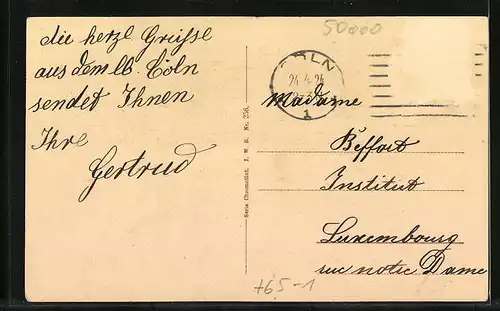 die herzl Grüsse
aus dem lb. Cöln
sendet Ihnen
Ihre
Gertrud
Serie Chromodist. I. W. B. Nr. 256.
50000
CÖLN
24.4.24
1
Madame
Beffort
Institut
Luxembourg
rue notre Dame
+65-1